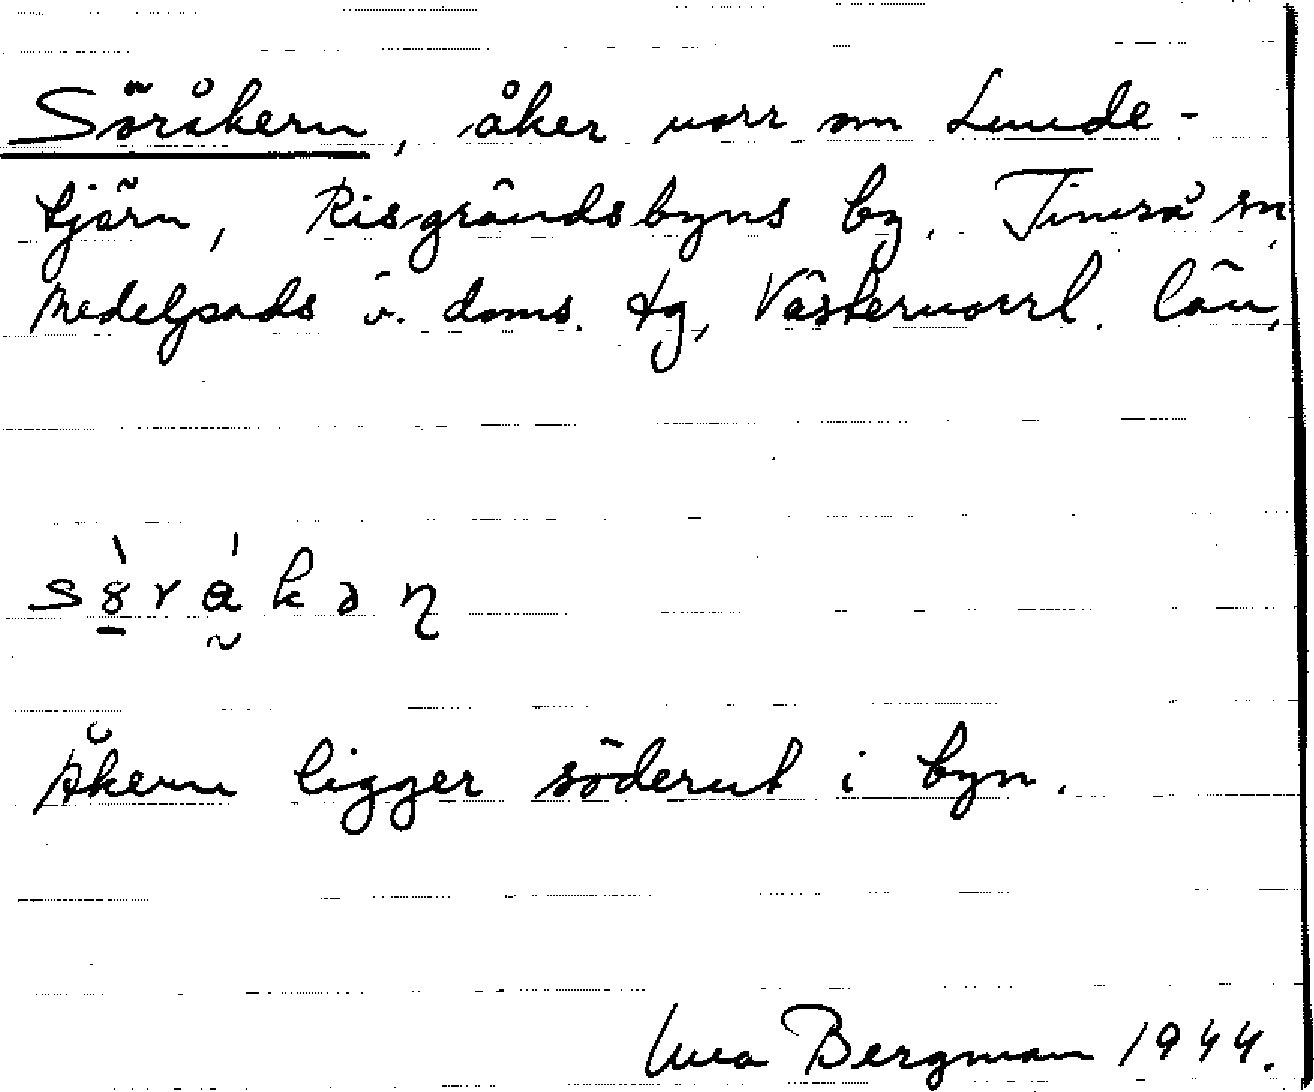 Söråkern, åker norr om Lunde-
tjärn, Risgrändsbyns by. Timrå sn
Medelpads v. doms. tg, Västernorrl. län,
Åkern ligger söderut i byn.
Bergman 1944.